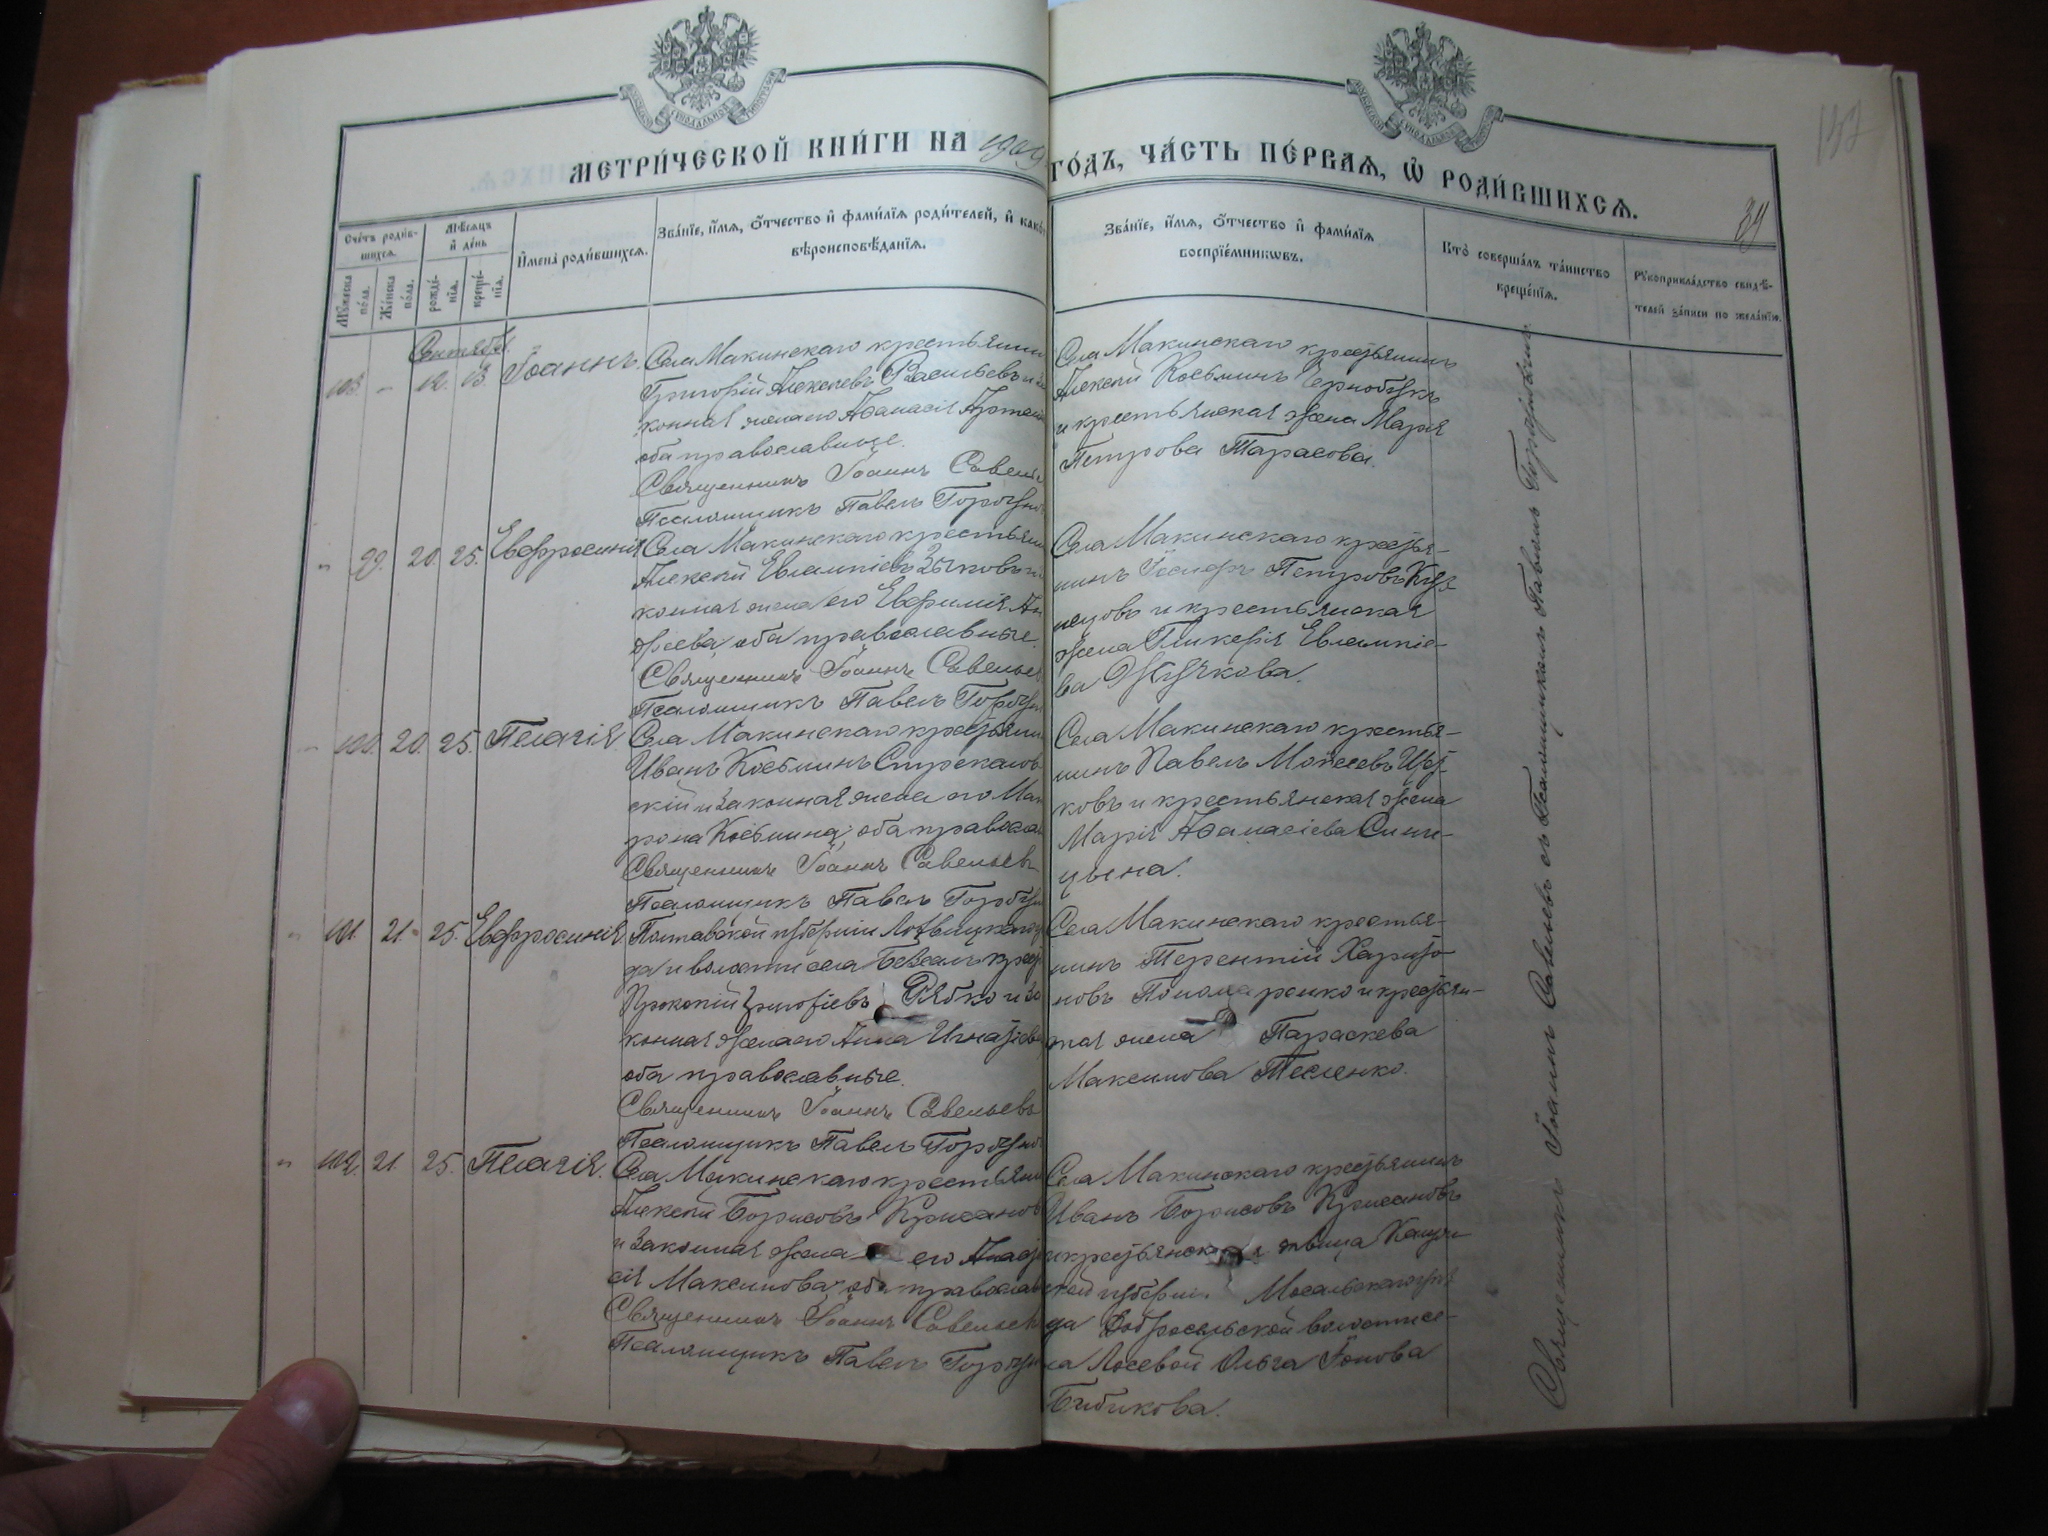 МЕТРИ́ЧЕСКОЙ КНИ́ГИ НА 1909
ГО́ДЪ, ЧА́СТЬ ПЕ́РВАѦ, Ѡ҆ РОДИ́ВШИХСѦ.
39
Сче́тъ роди́в-
шихсѧ.
Мѣ́сѧцъ
и҆ де́нь
И҆мена̀ роди́вшихсѧ.
Зва́нїе, и҆́мѧ, о҆́тчество и҆ фами́лїѧ роди́телей, и҆ како́
вѣроисповѣ́данїѧ.
Мꙋ́жеска
по́ла.
Же́нска
по́ла.
рожде́-
нїѧ.
креще́-
нїѧ.
Зва́нїе, и҆́мѧ, о҆́тчество и҆ фами́лїѧ
воспрїе́мникѡвъ.
Кто̀ соверша́лъ та́инство
креще́нїѧ.
Рꙋкоприкла́дство свидѣ́-
телей за́писи по жела́нїю.
Сентябрь
103. – 12. 13. Іоаннъ.
Села Макинскаго крестьянин
Григорій Алексѣевъ Васильевъ и за
конная жена его Афанасія Артем
оба православные.
Священникъ Іоаннъ Савель
Псаломщикъ Павелъ Горбун
Села Макинскаго крестьянинъ
Алексѣй Косьминъ Чернобукъ
и крестьянская жена Марія
Петрова Тарасова.
" 99. 20. 25. Евфросинія
Села Макинскаго крестьян
Алексѣй Евлампіевъ Зыковъ и за
конная жена его Евфимія Ан
дреева, оба православные.
Священникъ Іоаннъ Савельев
Псаломщикъ Павелъ Горбун
Села Макинскаго крестья-
нинъ Петровъ Куз-
нецовъ и крестьянская
жена Гликерія Евлампіе-
ва Жучкова.
" 100. 20. 25. Пелагія
Села Макинскаго крестьянин
Иванъ Косьминъ Стрекалов
скій и законная жена его Мат
рона Косьмина, оба православ
Священникъ Іоаннъ Савельевъ
Псаломщикъ Павелъ Горбун
Села Макинскаго крестья-
нинъ Павелъ Моѵсеевъ
ковъ и крестьянская жена
Марія Афанасіева Сини-
цына.
" 101. 21. 25. Евфросинія
Полтавской губерніи Лохвицкаго у
да и волости села крест
Прокопій Григоріевъ Рябко и за
конная жена его Анна Игнатіева
оба православные.
Священникъ Іоаннъ Савельевъ
Псаломщикъ Павелъ Горбун
Села Макинскаго крестья-
нинъ Терентій Харито-
новъ Пономаренко и крестьян-
ская жена Параскева
Максимова Тесленко.
" 102. 21. 25. Пелагія.
Села Макинскаго крестьянин
Алексѣй Борисовъ Крисановъ
и законная жена его Анаста
сія Максимова, оба православ
Священникъ Іоаннъ Савельевъ
Псаломщикъ Павелъ Горбун
Села Макинскаго крестьянинъ
Иванъ Борисовъ Крисановъ
и крестьянская дѣвица Калуж-
ской губерніи Мосальскаго уѣз
да Добросельской волости се-
ла Лосевой Ольга Іонова
Бибикова.
Священникъ Іоаннъ Савельевъ съ Псаломщикомъ Павломъ Горбуновымъ